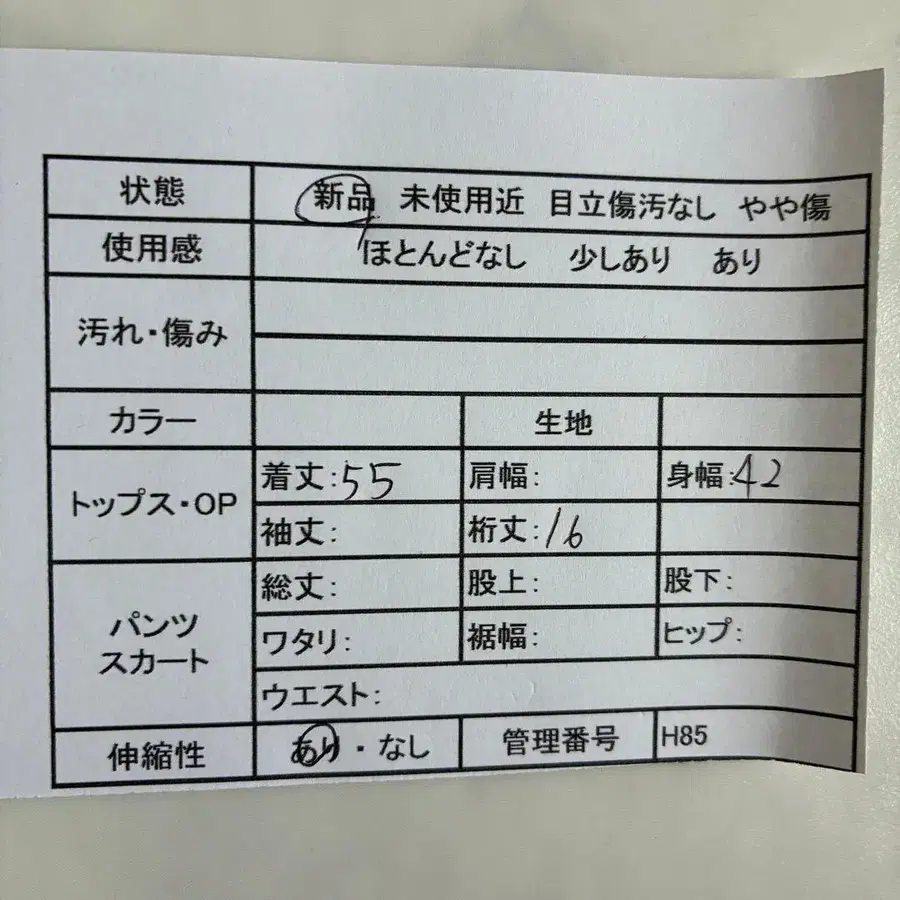 状態 新品 未使用近 目立傷汚なし やや傷
使用感 ほとんどなし 少しあり あり
汚れ・傷み
カラー 生地
トップス・OP 着丈:55 肩幅: 身幅:42
袖丈: 裄丈:16
パンツ スカート 総丈: 股上: 股下:
ワタリ: 裾幅: ヒップ:
ウエスト:
伸縮性 あり・なし 管理番号 H85